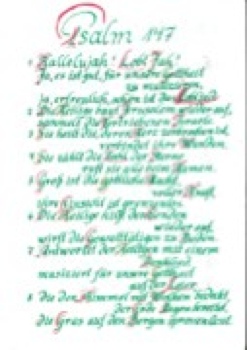 Psalm 147
1 Hallelujah! Lobt Jah!
Ja, es ist gut, für unsre Gottheit
zu musizieren,
ja, erfreulich, schön ist der Lobgesang
2 Die Heilige baut Jerusalem auf,
sammelt die Vertriebenen Israels.
3 Sie heilt, die deren Herz zerbrochen ist,
verbindet ihre Wunden.
4 Sie zählt die Zahl der Sterne
ruft sie aus dem Namen.
5 Groß ist die göttliche Macht,
voller Kraft,
ihre Einsicht ist grenzenlos.
6 Die Heilige hilft den Elenden
wieder auf,
wirft die Gewalttätigen zu Boden.
7 Antwortet der Heiligen mit einem
Danklied
musiziert für unsre Gottheit
auf der Leier
8 die den Himmel mit Wolken bedeckt
der Erde Regen bereitet,
die Gras auf den Bergen sprossen lässt.